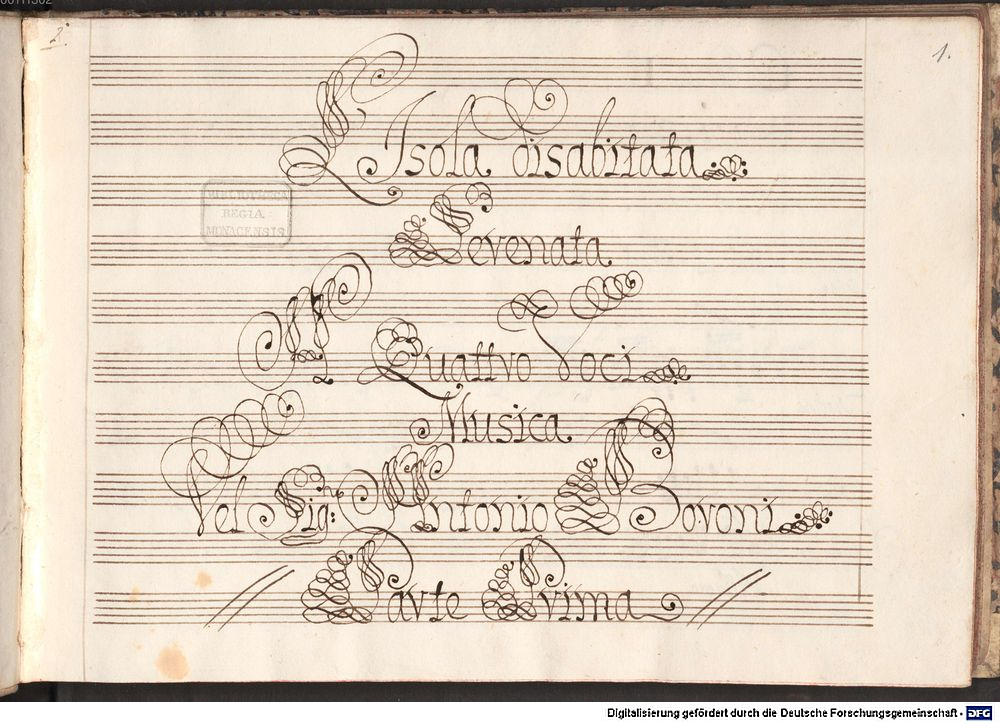 2.
1.
L'Isola disabitata
Serenata
BIBLIOTHECA
REGIA
MONACENSIS
A Quattro Voci
Musica
Del Sig:r Antonio Boroni
Parte Prima
Digitalisierung gefördert durch die Deutsche Forschungsgemeinschaft - DFG